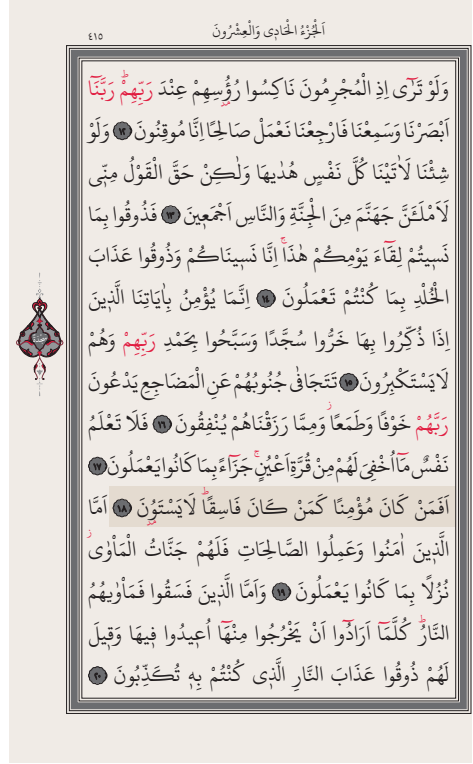 اَلْجُزْءُ الْحَادِى وَالْعِشْرُونَ
٤١٥
وَلَوْ تَرٰٓى اِذِ الْمُجْرِمُونَ نَاكِسُوا رُؤُسِهِمْ عِنْدَ رَبِّهِمْۜ رَبَّنَٓا
اَبْصَرْنَا وَسَمِعْنَا فَارْجِعْنَا نَعْمَلْ صَالِحًا اِنَّا مُوقِنُونَ ﴿١٢﴾ وَلَوْ
شِئْنَا لَاٰتَيْنَا كُلَّ نَفْسٍ هُدٰيهَا وَلٰكِنْ حَقَّ الْقَوْلُ مِنّٖى
لَاَمْلَـَٔنَّ جَهَنَّمَ مِنَ الْجِنَّةِ وَالنَّاسِ اَجْمَعٖينَ ﴿١٣﴾ فَذُوقُوا بِمَا
نَسٖيتُمْ لِقَٓاءَ يَوْمِكُمْ هٰذَاۚ اِنَّا نَسٖينَاكُمْ وَذُوقُوا عَذَابَ
الْخُلْدِ بِمَا كُنْتُمْ تَعْمَلُونَ ﴿١٤﴾ اِنَّمَا يُؤْمِنُ بِاٰيَاتِنَا الَّذٖينَ
اِذَا ذُكِّرُوا بِهَا خَرُّوا سُجَّدًا وَسَبَّحُوا بِحَمْدِ رَبِّهِمْ وَهُمْ
لَا يَسْتَكْبِرُونَ ﴿١٥﴾ تَتَجَافٰى جُنُوبُهُمْ عَنِ الْمَضَاجِعِ يَدْعُونَ
رَبَّهُمْ خَوْفًا وَطَمَعًاؗ وَمِمَّا رَزَقْنَاهُمْ يُنْفِقُونَ ﴿١٦﴾ فَلَا تَعْلَمُ
نَفْسٌ مَٓا اُخْفِىَ لَهُمْ مِنْ قُرَّةِ اَعْيُنٍۚ جَزَٓاءً بِمَا كَانُوا يَعْمَلُونَ ﴿١٧﴾
اَفَمَنْ كَانَ مُؤْمِنًا كَمَنْ كَانَ فَاسِقًاؕ لَا يَسْتَوُ۫نَ ﴿١٨﴾ اَمَّا
الَّذٖينَ اٰمَنُوا وَعَمِلُوا الصَّالِحَاتِ فَلَهُمْ جَنَّاتُ الْمَاْوٰىؗ
نُزُلًا بِمَا كَانُوا يَعْمَلُونَ ﴿١٩﴾ وَاَمَّا الَّذٖينَ فَسَقُوا فَمَاْوٰيهُمُ
النَّارُؕ كُلَّمَٓا اَرَادُٓوا اَنْ يَخْرُجُوا مِنْهَٓا اُعٖيدُوا فٖيهَا وَقٖيلَ
لَهُمْ ذُوقُوا عَذَابَ النَّارِ الَّذٖى كُنْتُمْ بِهٖ تُكَذِّبُونَ ﴿٢٠﴾